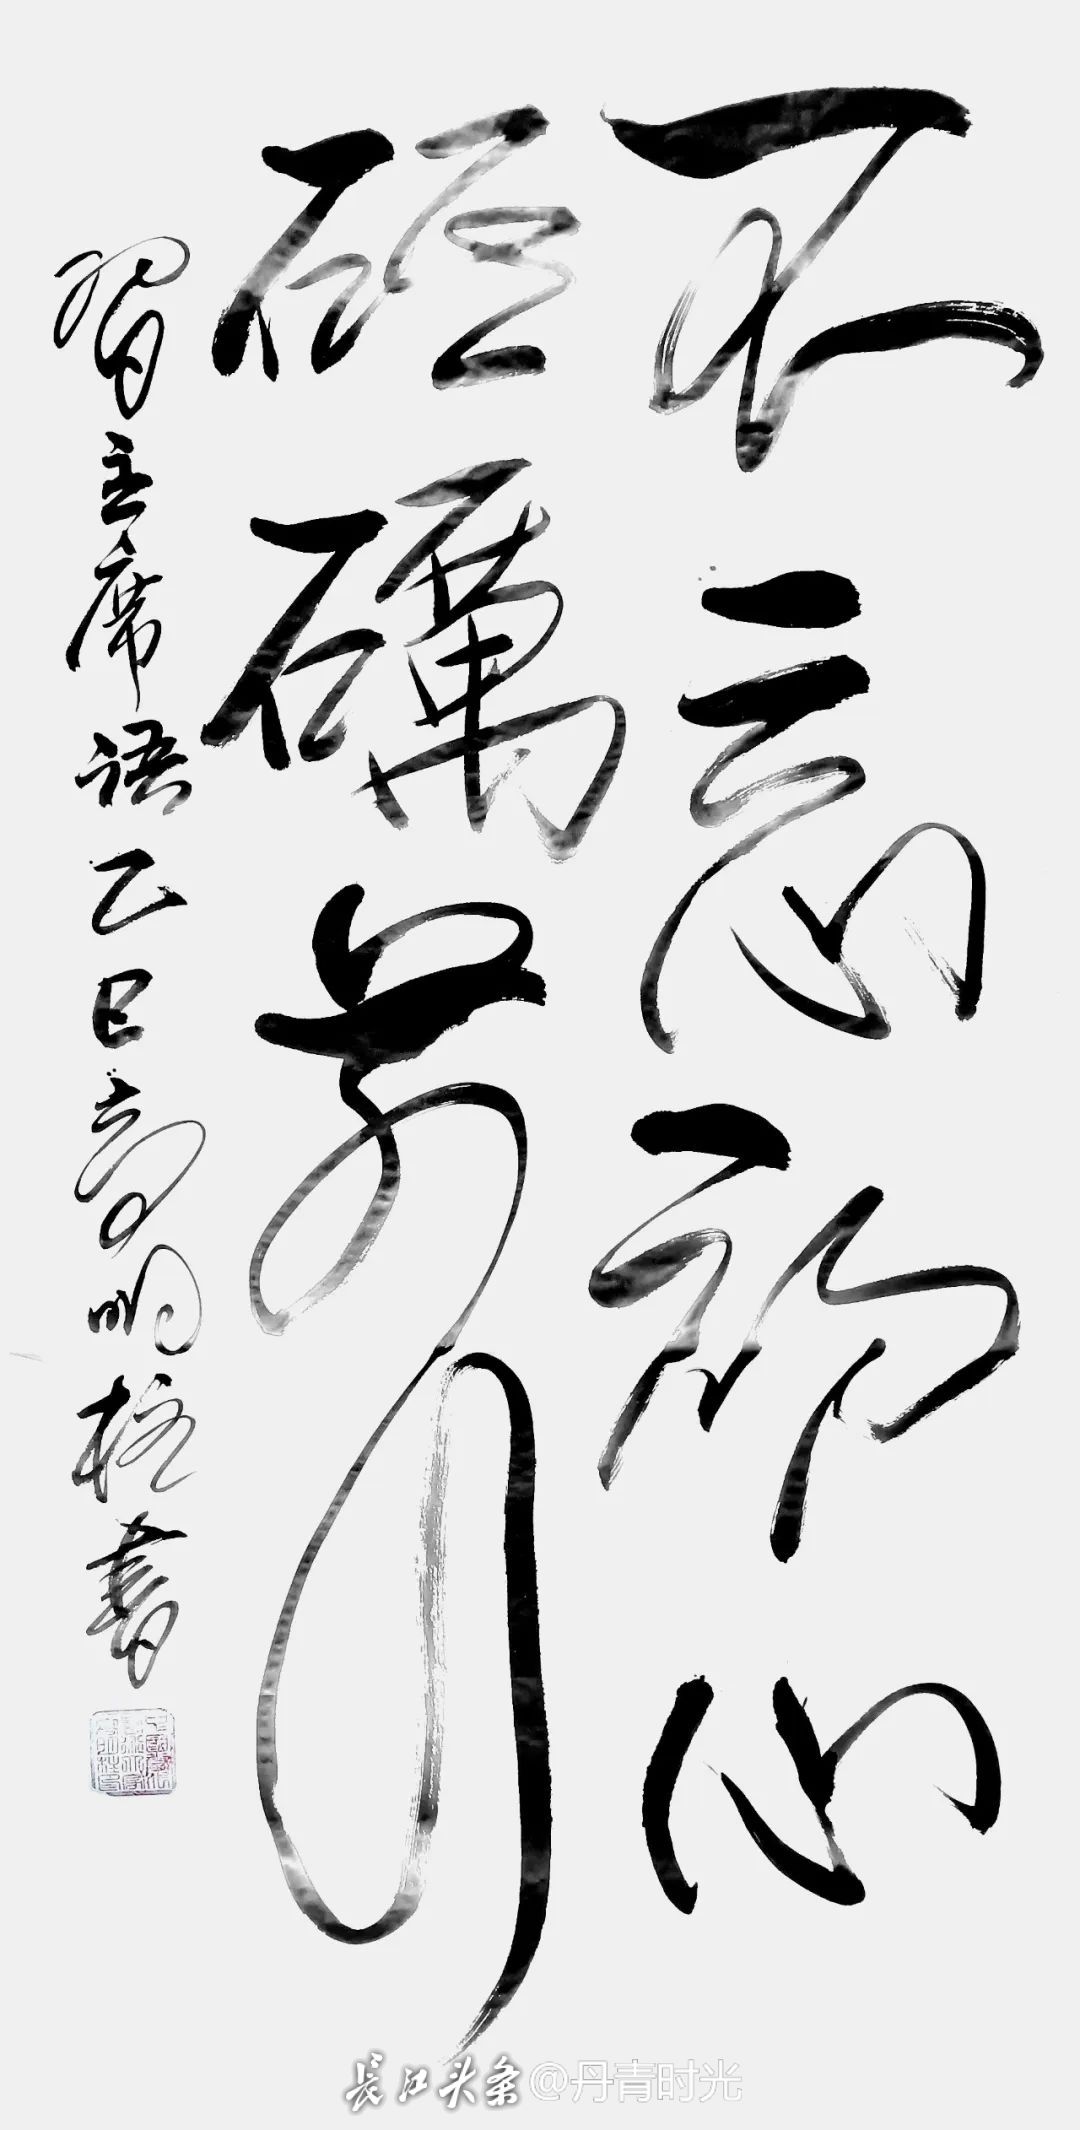 不忘初心
砥礪前行
習主席语乙巳高明柱書
長江头条 @丹青时光